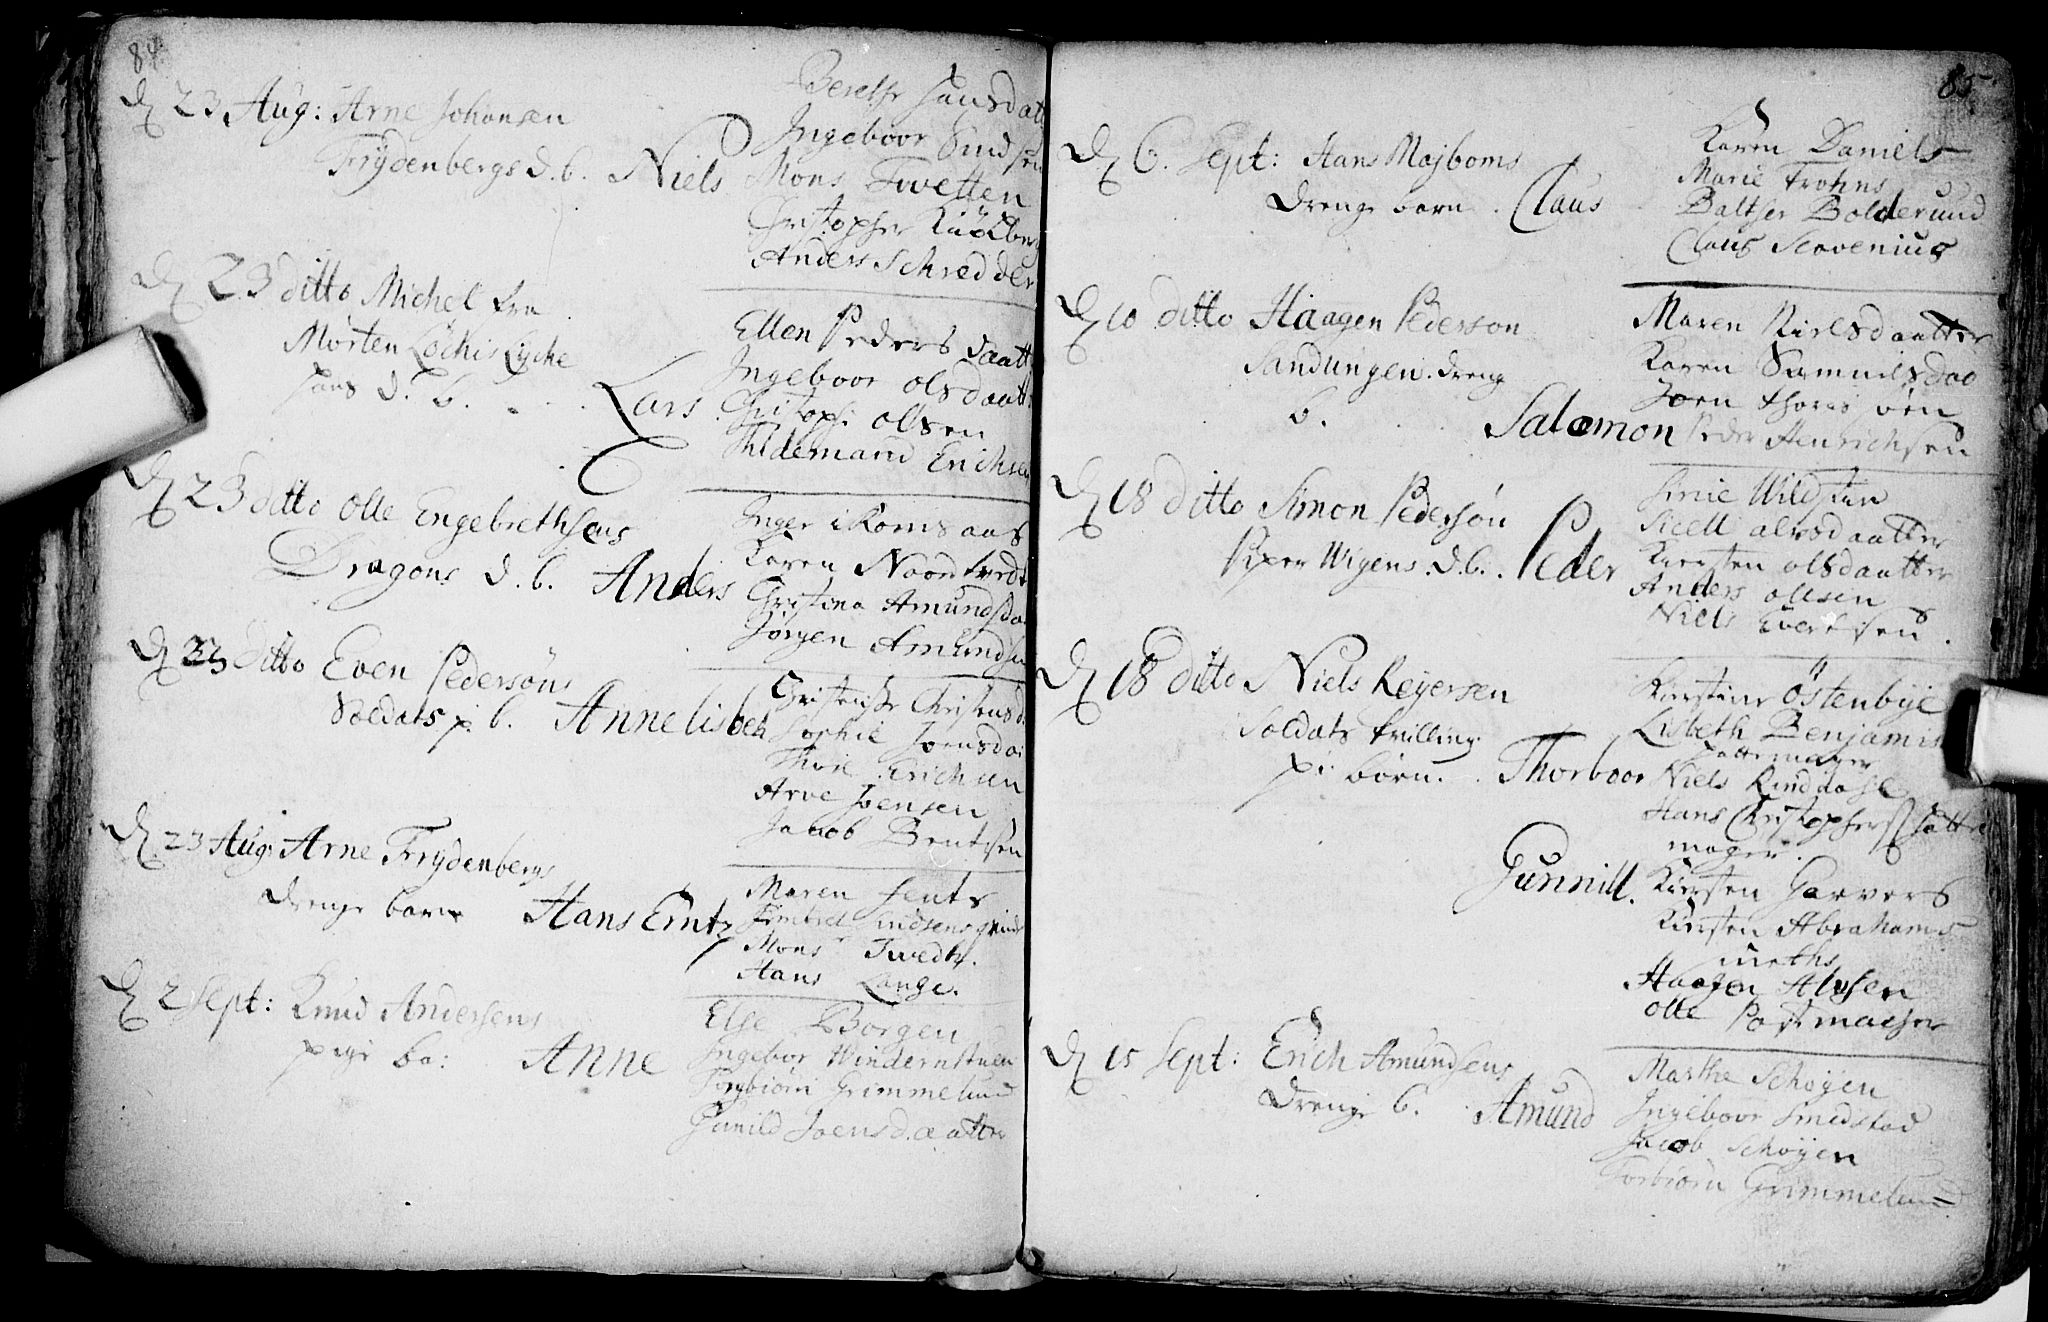 84.
D 23 Aug: Arne Johansen
Frÿdenbergs d. b. Niels
Berethe Hansdatt
Ingeboor
Mons Twetten
Christopher
Anders Schredder
D 23 ditto Michel fra
Morten Løchis Lÿche
Hans d. b. Lars
Ellen Peders daatt
Ingeboor olsdaatt
Christoph: olsen
Hildemand Erichsen
D 23 ditto olle Engebrethsens
Dragons d. b. Anders
Inger i Korns aas
Karen Noordtvedt
Christina Amundsda
Jørgen Amundsen
D 23 ditto Even Pedersøns
Soldats p. b. Anne lisbeth
Christensd
Sophie Joensda
Erichsen
Arve Joensen
Jacob Bentsen
D. 23 Aug: Arne Frÿdenbergs
drenge barn Hans Erntz
Maren Jents
Mons Twedt.
Hans Lange.
D 2 Sept: Knud Andersens
pige ba: Anne
Else Borgen
Ingebor
Torbiörn Grimmelund
Gunild Joensdaatter
85
D 6. Sept: Hans Majboms
Drenge barn. Claus
Karen Daniels
Marie Frohns
Baltser Bolderund
Claus Slovenius
D 10 ditto Haagen Pederson
Sandungen. dreng
b. Salomon
Maren Nielsdaatter
Karen Samuelsdaa
Joen
Peder Henrichsen
D 18 ditto Simon Pedersøn
Piper Wigens. d.b. Peder
Sicell alvsdaatter
Kiersten olsdaatter
Anders olsen
Niels Evertsen.
D 18 ditto Niels Reÿersen
Soldats tvilling
pi. børn. Thorboor
Kirstine Östenbÿe
Lisbeth Benjamis
hattemager
Niels Rinddahl
Hans Christophers hatte
mager.
Gunnill.
Kiersten Garvers
Kirsten Abrahams
Haagen Alvsen
olle Postmacher
D 15 Sept: Erich Amundsens
Drenge b. Amund
Marthe Schøÿen
Ingeboor Smedstad
Jacob Schøÿen
Torbiörn Grimmelun=